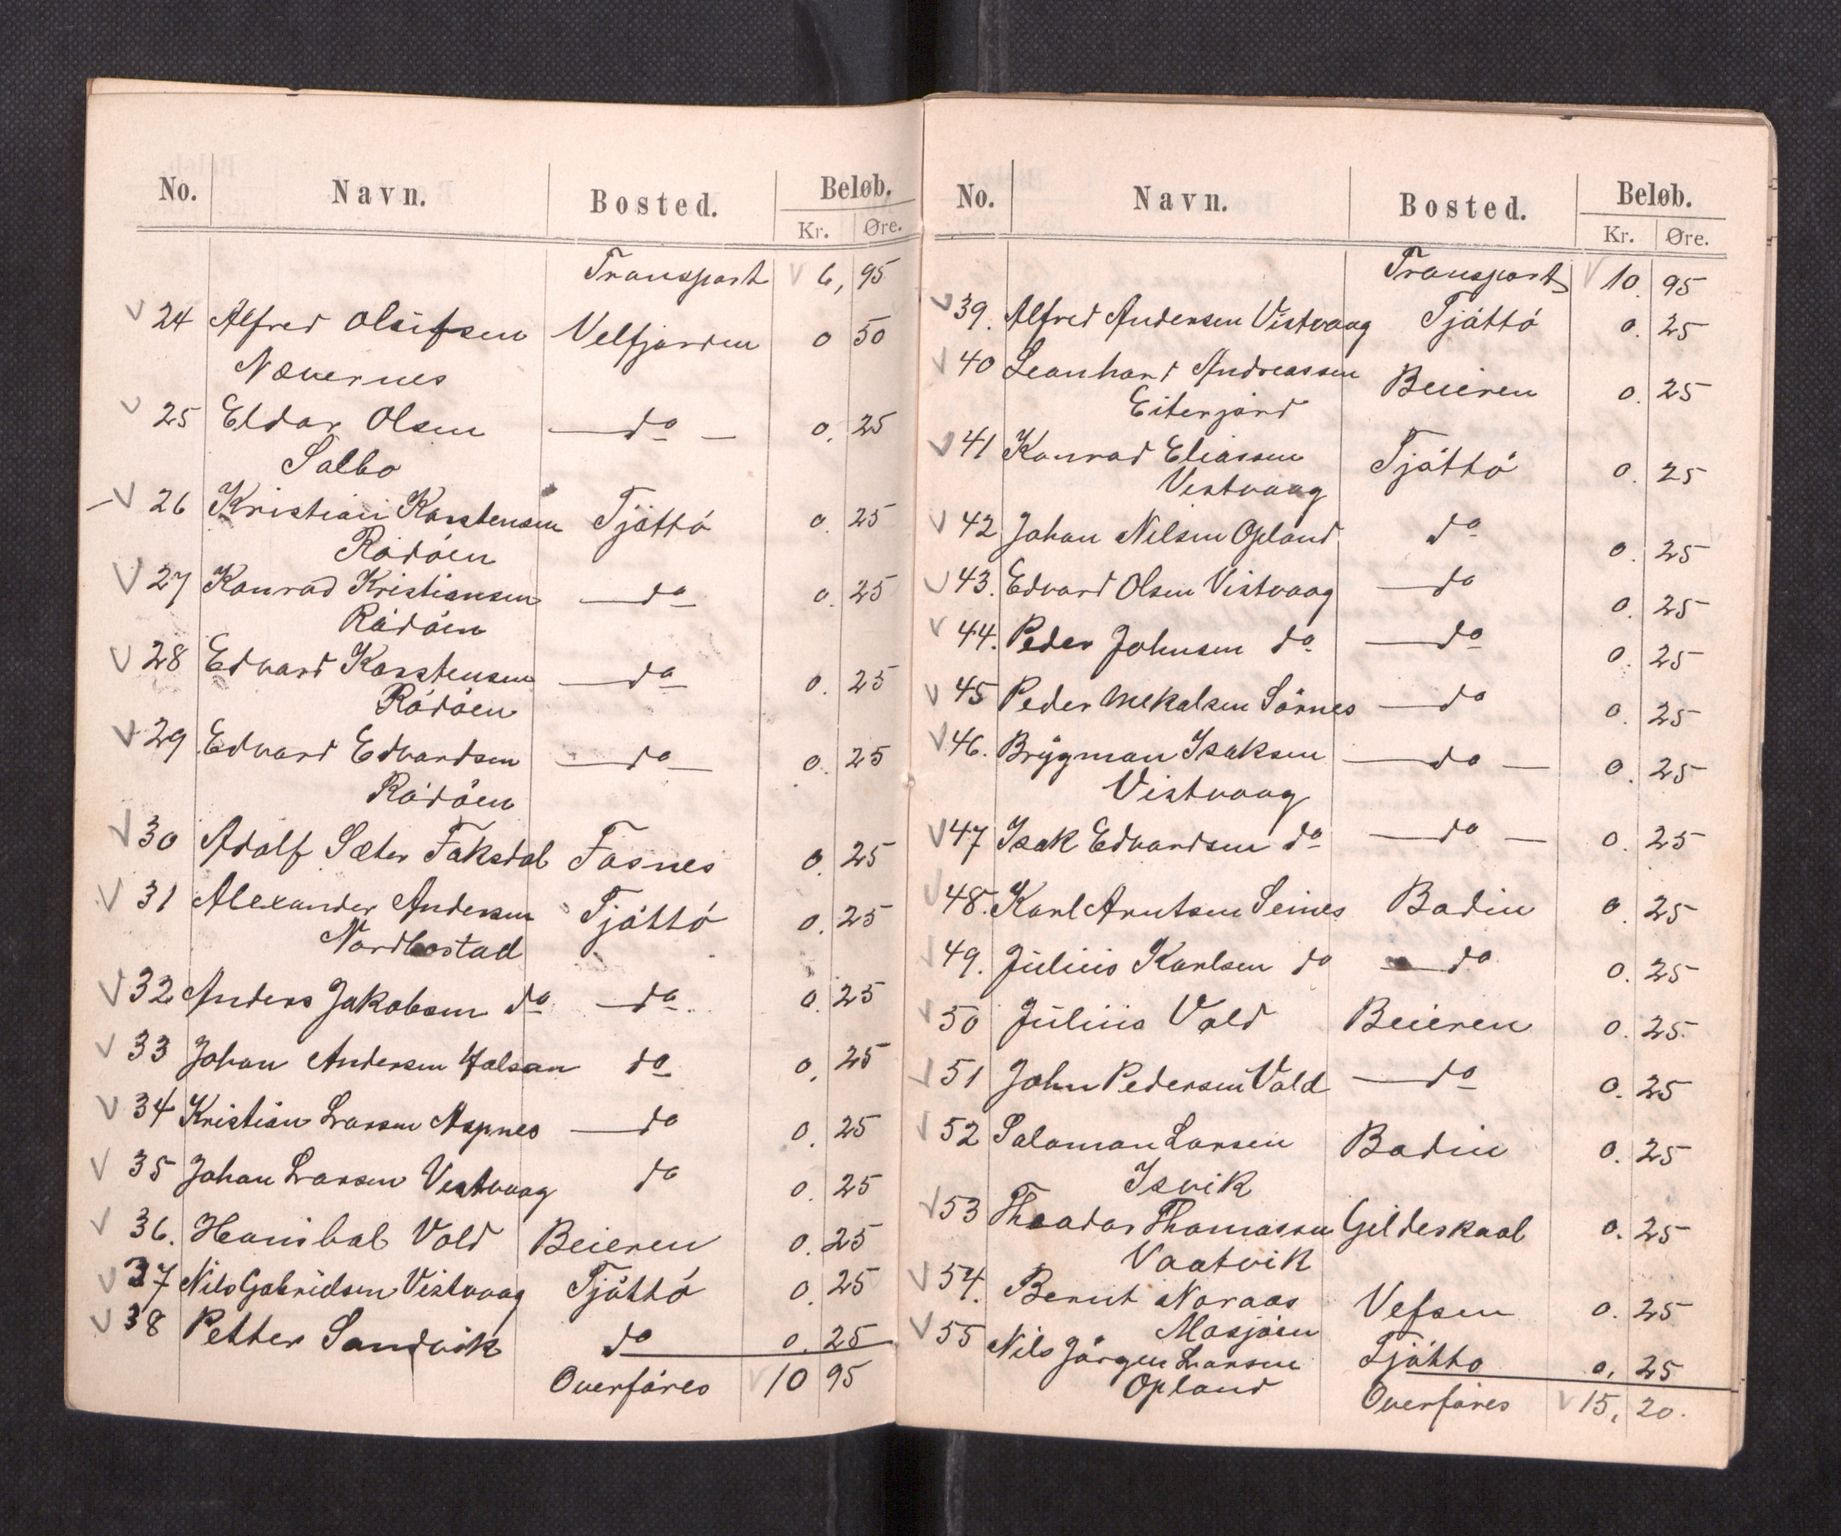 No. Navn. Bosted. Beløb.
Kr. Øre.
Transport 6, 95
24 Alfred Olufsen Velfjorden 0 50
Nævernes
25 Eldar Olsen do 0. 25
Salbo
26 Kristian Karstensen Tjöttö 0. 25
Rödöen
27 Konrad Kristiansen do 0. 25
Rödöen
28 Edvard Karstensen do 0. 25
Rödöen
29 Edvard Edvardsen do 0. 25
Rödöen
30 Adolf Sæter Faksdal Fosnes 0. 25
31 Alexander Andersen Tjöttö 0. 25
Nordbostad
32 Anders Jakobsen do do 0. 25
33 Johan Andersen do 0. 25
34 Kristian Larsen Aspnes do 0. 25
35 Johan Larsen Vistvaag do 0. 25
36. Hanibal Vold Beieren 0. 25
37 Nils Gabrielsen Vistvaag Tjöttö 0. 25
38 Petter Sandvik do 0. 25
Overföres 10 95
No. Navn. Bosted. Beløb.
Kr. Øre.
Transport 10. 95
39. Alfred Andersen Vistvaag Tjöttö 0. 25
40 Leonhard Andreassen Beieren 0. 25
Eiterjord
41 Konrad Eliassen Tjöttö 0. 25
Vistvaag
42 Johan Nilsen Opland do 0. 25
43. Edvard Olsen Vistvaag do 0. 25
44. Peder Johnsen do do 0. 25
45 Peder Mekalsen Sörnes do 0. 25
46. Brygman Isaksen do 0. 25
Vistvaag
47 Isak Edvardsen do do 0. 25
48. Karl Arntsen Seines Bodin 0. 25
49. Julius Karlsen do do 0. 25
50 Julius Vold Beieren 0. 25.
51 John Pedersen Vold do 0. 25
52 Salomon Larsen Bodin 0. 25
Isvik
53 Theodor Thomassen Gildeskaal 0. 25
Vaatvik
54. Bernt Noraas Vefsen 0. 25
Mosjöen
55 Nils Jörgen Larsen Tjötto 0. 25
Opland
Overföres 15, 20.